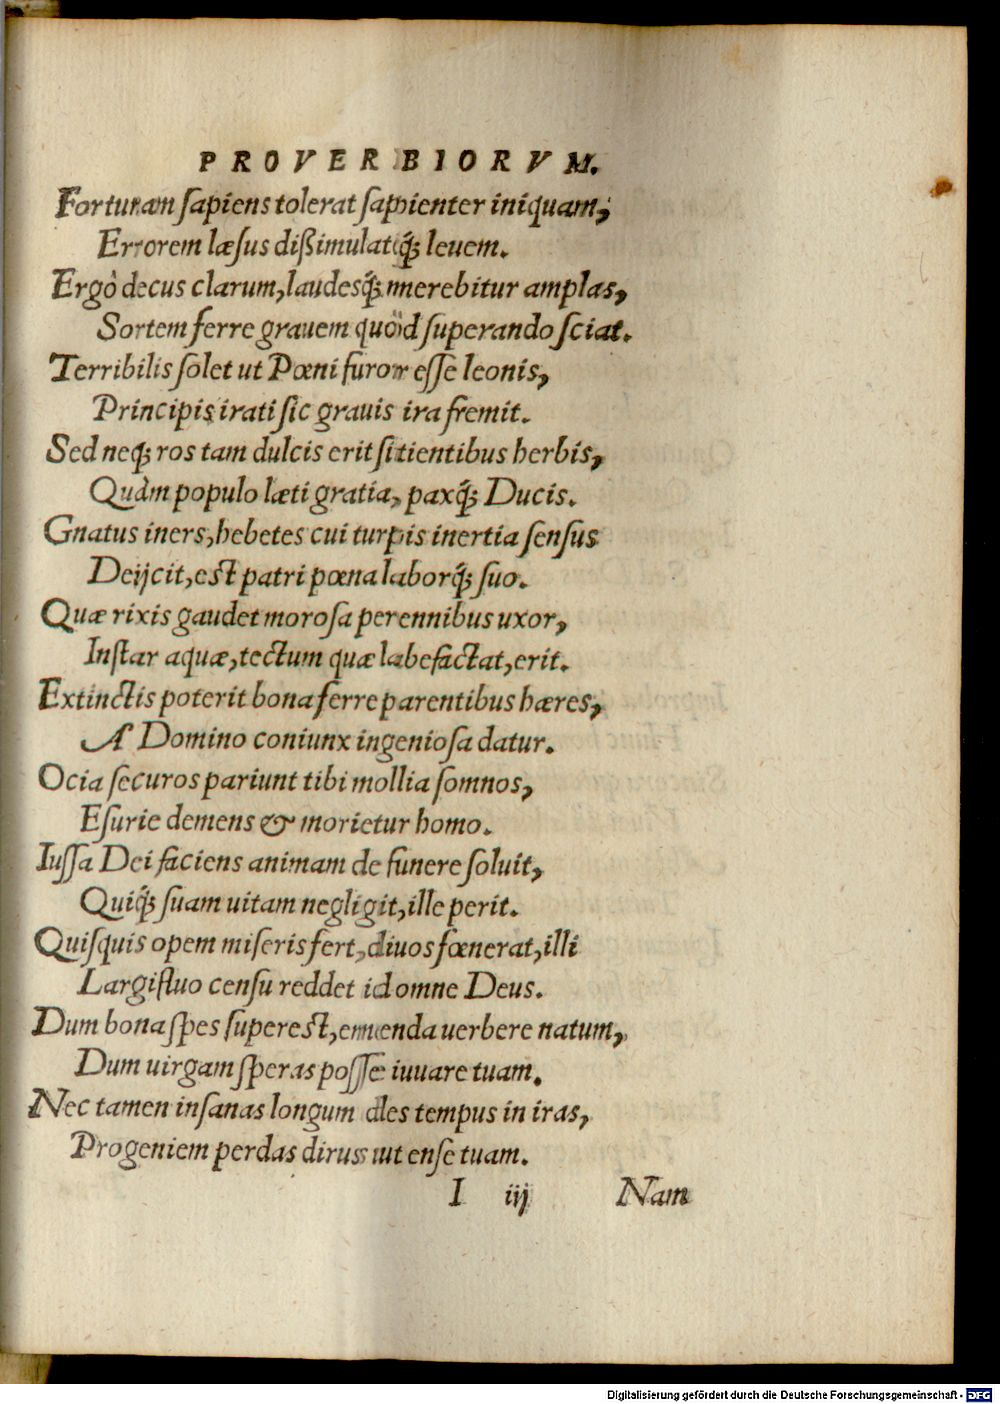 PROVERBIORVM.
Fortunam ſapiens tolerat ſapienter iniquam,
Errorem læſus dißimulatq́; leuem.
Ergò decus clarum, laudesq́; merebitur amplas,
Sortem ferre grauem quòd ſuperando ſciat.
Terribilis ſolet ut Pœni furor eſſe leonis,
Principis irati ſic grauis ira fremit.
Sed neq; ros tam dulcis erit ſitientibus herbis,
Quàm populo læti gratia, paxq́; Ducis.
Gnatus iners, hebetes cui turpis inertia ſenſus
Deijcit, eſt patri pœna laborq́; ſuo.
Quæ rixis gaudet moroſa perennibus uxor,
Inſtar aquæ, tectum quæ labefactat, erit.
Extinctis poterit bona ferre parentibus hæres,
A Domino coniunx ingenioſa datur.
Ocia ſecuros pariunt tibi mollia ſomnos,
Eſurie demens & morietur homo.
Iuſſa Dei faciens animam de funere ſoluit,
Quiq́; ſuam uitam negligit, ille perit.
Quiſquis opem miſeris fert, diuos fœnerat, illi
Largifluo cenſu reddet id omne Deus.
Dum bona ſpes ſupereſt, emenda uerbere natum,
Dum uirgam ſperas poſſe iuuare tuam.
Nec tamen inſanas longum des tempus in iras,
Progeniem perdas dirus ut enſe tuam.
I iij Nam
Digitalisierung gefördert durch die Deutsche Forschungsgemeinschaft - DFG